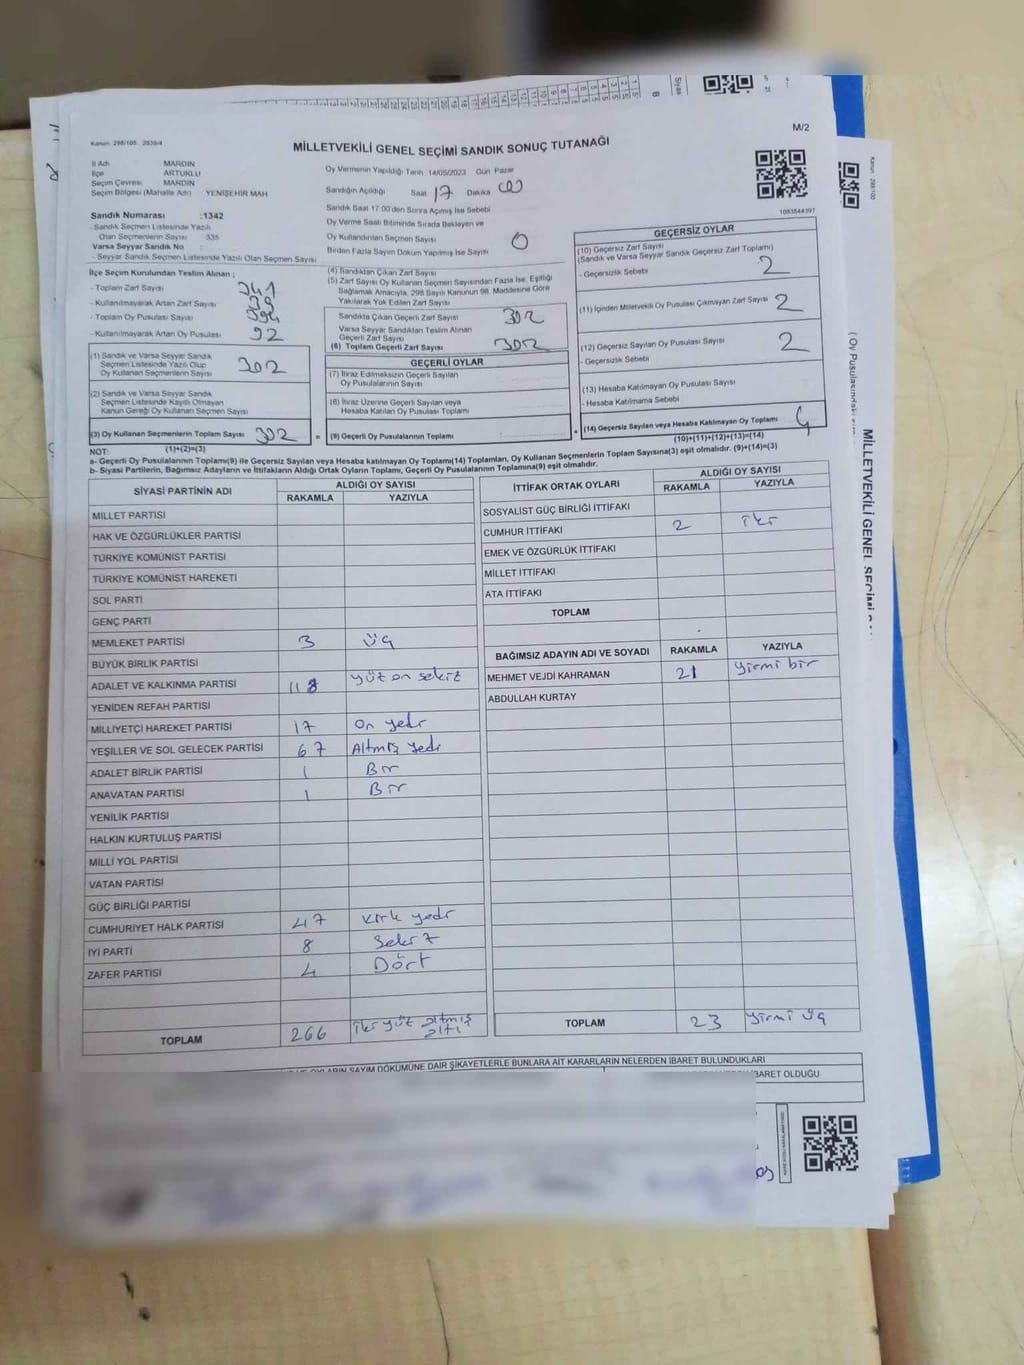 Kanun 298/105 2839/4
MİLLETVEKİLİ GENEL SEÇİMİ SANDIK SONUÇ TUTANAĞI
M/2
İl Adı MARDİN
İlçe ARTUKLU
Seçim Çevresi MARDİN
Seçim Bölgesi (Mahalle Adı) YENİŞEHİR MAH
Sandık Numarası :1342
- Sandık Seçmen Listesinde Yazılı
Olan Seçmenlerin Sayısı 335
Varsa Seyyar Sandık No :
- Seyyar Sandık Seçmen Listesinde Yazılı Olan Seçmen Sayısı
Oy Vermenin Yapıldığı Tarih 14/05/2023 Gün Pazar
Sandığın Açıldığı Saat 17 Dakika 00
Sandık Saat 17.00'den Sonra Açımış İse Sebebi
Oy Verme Saati Bitiminde Sırada Bekleyen ve
Oy Kullandırılan Seçmen Sayısı 0
Birden Fazla Sayım Döküm Yapılmış İse Sayısı
1083544397
İlçe Seçim Kurulundan Teslim Alınan ;
- Toplam Zarf Sayısı
- Kullanılmayarak Artan Zarf Sayısı
- Toplam Oy Pusulası Sayısı
- Kullanılmayarak Artan Oy Pusulası 92
(1) Sandık ve Varsa Seyyar Sandık
Seçmen Listesinde Yazılı Olup
Oy Kullanan Seçmenlerin Sayısı 302
(2) Sandık ve Varsa Seyyar Sandık
Seçmen Listesinde Kayıtlı Olmayan
Kanun Gereği Oy Kullanan Seçmen Sayısı
(3) Oy Kullanan Seçmenlerin Toplam Sayısı 302
(1)+(2)=(3)
(4) Sandıktan Çıkan Zarf Sayısı
(5) Zarf Sayısı Oy Kullanan Seçmen Sayısından Fazla İse, Eşitliği
Sağlamak Amacıyla, 298 Sayılı Kanunun 98. Maddesine Göre
Yakılarak Yok Edilen Zarf Sayısı
Sandıkta Çıkan Geçerli Zarf Sayısı 302
Varsa Seyyar Sandıktan Teslim Alınan
Geçerli Zarf Sayısı
(6) Toplam Geçerli Zarf Sayısı 302
GEÇERLİ OYLAR
(7) İtiraz Edilmeksizin Geçerli Sayılan
Oy Pusulalarının Sayısı
(8) İtiraz Üzerine Geçerli Sayılan veya
Hesaba Katılan Oy Pusulası Toplamı
= (9) Geçerli Oy Pusulalarının Toplamı
GEÇERSİZ OYLAR
(10) Geçersiz Zarf Sayısı
(Sandık ve Varsa Seyyar Sandık Geçersiz Zarf Toplamı)
- Geçersizlik Sebebi 2
(11) İçinden Milletvekili Oy Pusulası Çıkmayan Zarf Sayısı 2
(12) Geçersiz Sayılan Oy Pusulası Sayısı 2
- Geçersizlik Sebebi
(13) Hesaba Katılmayan Oy Pusulası Sayısı
- Hesaba Katılmama Sebebi
+ (14) Geçersiz Sayılan veya Hesaba Katılmayan Oy Toplamı
(10)+(11)+(12)+(13)=(14)
NOT:
a- Geçerli Oy Pusulalarının Toplamı(9) ile Geçersiz Sayılan veya Hesaba katılmayan Oy Toplamı(14) Toplamları, Oy Kullanan Seçmenlerin Toplam Sayısına(3) eşit olmalıdır. (9)+(14)=(3)
b- Siyasi Partilerin, Bağımsız Adayların ve İttifakların Aldığı Ortak Oyların Toplamı, Geçerli Oy Pusulalarının Toplamına(9) eşit olmalıdır.
SİYASİ PARTİNİN ADI ALDIĞI OY SAYISI
RAKAMLA YAZIYLA
MİLLET PARTİSİ
HAK VE ÖZGÜRLÜKLER PARTİSİ
TÜRKİYE KOMÜNİST PARTİSİ
TÜRKİYE KOMÜNİST HAREKETİ
SOL PARTİ
GENÇ PARTİ
MEMLEKET PARTİSİ 3 üç
BÜYÜK BİRLİK PARTİSİ
ADALET VE KALKINMA PARTİSİ 118 yüz on sekiz
YENİDEN REFAH PARTİSİ
MİLLİYETÇİ HAREKET PARTİSİ 17 on yedi
YEŞİLLER VE SOL GELECEK PARTİSİ 67 Altmış yedi
ADALET BİRLİK PARTİSİ 1 Bir
ANAVATAN PARTİSİ 1 Bir
YENİLİK PARTİSİ
HALKIN KURTULUŞ PARTİSİ
MİLLİ YOL PARTİSİ
VATAN PARTİSİ
GÜÇ BİRLİĞİ PARTİSİ
CUMHURİYET HALK PARTİSİ 47 kırk yedi
İYİ PARTİ 8 Sekiz
ZAFER PARTİSİ 4 Dört
TOPLAM 266 iki yüz altmış altı
İTTİFAK ORTAK OYLARI ALDIĞI OY SAYISI
RAKAMLA YAZIYLA
SOSYALİST GÜÇ BİRLİĞİ İTTİFAKI
CUMHUR İTTİFAKI 2 iki
EMEK VE ÖZGÜRLÜK İTTİFAKI
MİLLET İTTİFAKI
ATA İTTİFAKI
TOPLAM
BAĞIMSIZ ADAYIN ADI VE SOYADI RAKAMLA YAZIYLA
MEHMET VEJDİ KAHRAMAN 21 yirmi bir
ABDULLAH KURTAY
TOPLAM 23 yirmi üç
OYLARIN SAYIM DÖKÜMÜNE DAİR ŞİKAYETLERLE BUNLARA AİT KARARLARIN NELERDEN İBARET BULUNDUKLARI
İBARET OLDUĞU
Kanun: 298/100
( Oy Pusulasındaki
MİLLETVEKİLİ GENEL SEÇİMİ